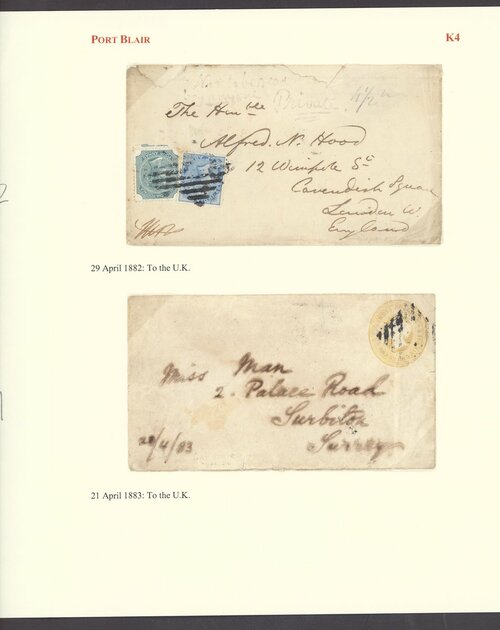 PORT BLAIR
K4
Private
4½
The Honble
Alfred. N. Hood
12 Wimpole St
Cavendish Square
London W.
England
29 April 1882: To the U.K.
Miss Man
2. Palace Road
Surbiton
Surrey
20/4/83
21 April 1883: To the U.K.